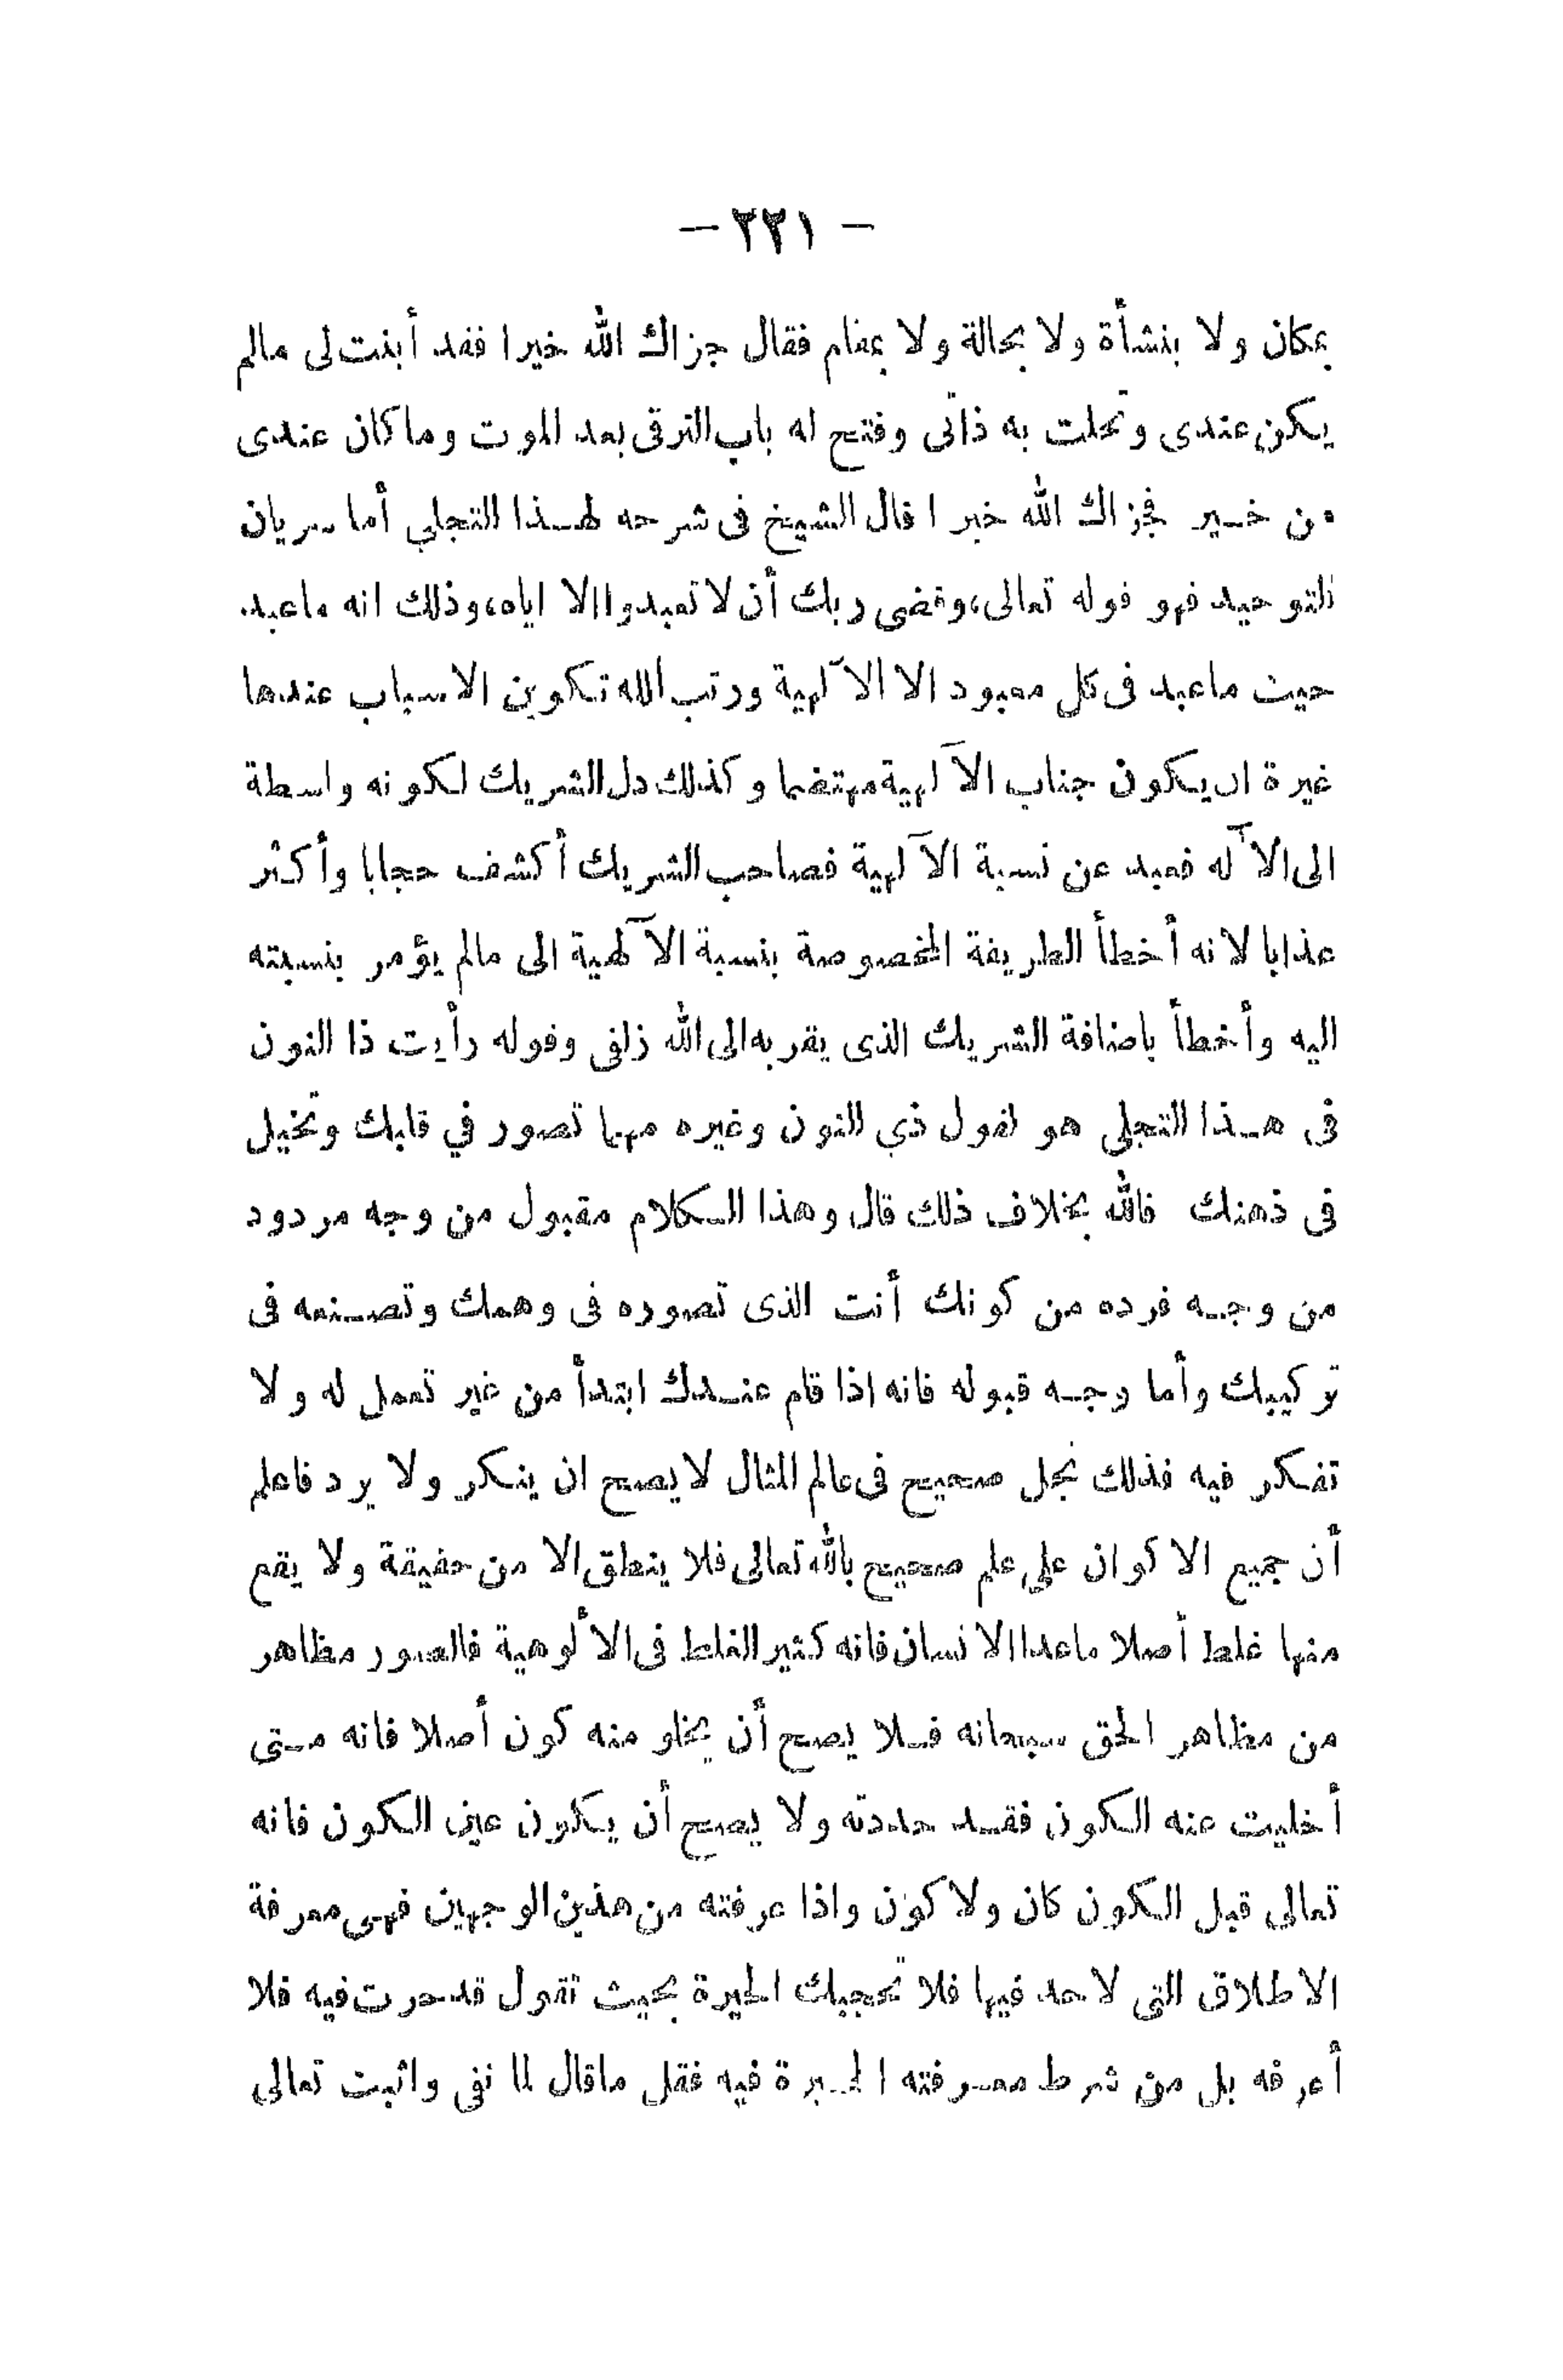 — ٢٢١ —
بمكان ولا بنشأة ولا بحالة ولا بمقام فقال جزاك الله خيرا فقد أبنت لى مالم
يكن عندى وتحلت به ذاتى وفتح له باب الترقى بعد الموت وما كان عندى
من خير فجزاك الله خيرا قال الشيخ فى شرحه لهذا التجلي أما سريان
التوحيد فهو قوله تعالى، وقضى ربك أن لا تعبدوا الا اياه، وذلك انه ماعبد
حيث ماعبد فى كل معبود الا الآلهية ورتب الله تكوين الاسباب عندها
غيرة ان يكون جناب الآلهية مهتضما وكذلك دل الشريك لكونه واسطة
الى الآله فعبد عن نسبة الآلهية فصاحب الشريك أكشف حجابا وأكثر
عذابا لانه أخطأ الطريقة المخصوصة بنسبة الآلهية الى مالم يؤمر بنسبته
اليه وأخطأ باضافة الشريك الذى يقربه الى الله زلفى وقوله رأيت ذا النون
فى هذا التجلى هو لقول ذي النون وغيره مهما تصور في قلبك وتخيل
فى ذهنك فالله بخلاف ذلك قال وهذا الكلام مقبول من وجه مردود
من وجه فرده من كونك أنت الذى تصوره فى وهمك وتصنعه فى
تركيبك وأما وجه قبوله فانه اذا قام عندك ابتدأ من غير تعمل له ولا
تفكر فيه فذلك تجل صحيح فى عالم المثال لا يصح ان ينكر ولا يرد فاعلم
أن جميع الاكوان على علم صحيح بالله تعالى فلا ينطق الا من حقيقة ولا يقع
منها غلط أصلا ماعدا الانسان فانه كثير الغلط فى الألوهية فالصور مظاهر
من مظاهر الحق سبحانه فلا يصح أن يخلو منه كون أصلا فانه متى
أخليت عنه الكون فقد حددته ولا يصح أن يكون عين الكون فانه
تعالى قبل الكون كان ولا كون واذا عرفته من هذين الوجهين فهى معرفة
الاطلاق التى لا حد فيها فلا تحجبك الحيرة بحيث تقول قد حرت فيه فلا
أعرفه بل من شرط معرفته الحيرة فيه فقل ماقال لما نفى واثبت تعالى